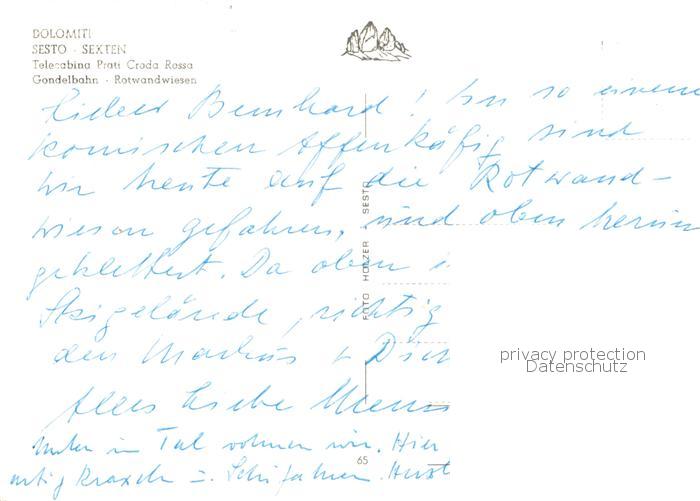 DOLOMITI
SESTO - SEXTEN
Telecabina Prati Croda Rossa
Gondelbahn - Rotwandwiesen
Lieber Bernhard! In so einem
komischen Affenkäfig sind
wir heute auf die Rotwand-
wiesen gefahren, sind oben herum
geklettert. Da oben i
Skigelände, richtig
den Markus + Dich
Alles Liebe Mums
Unten im Tal wohnen wir. Hier
kraxeln Schifahren.
FOTO HOLZER SESTO
65
privacy protection
Datenschutz